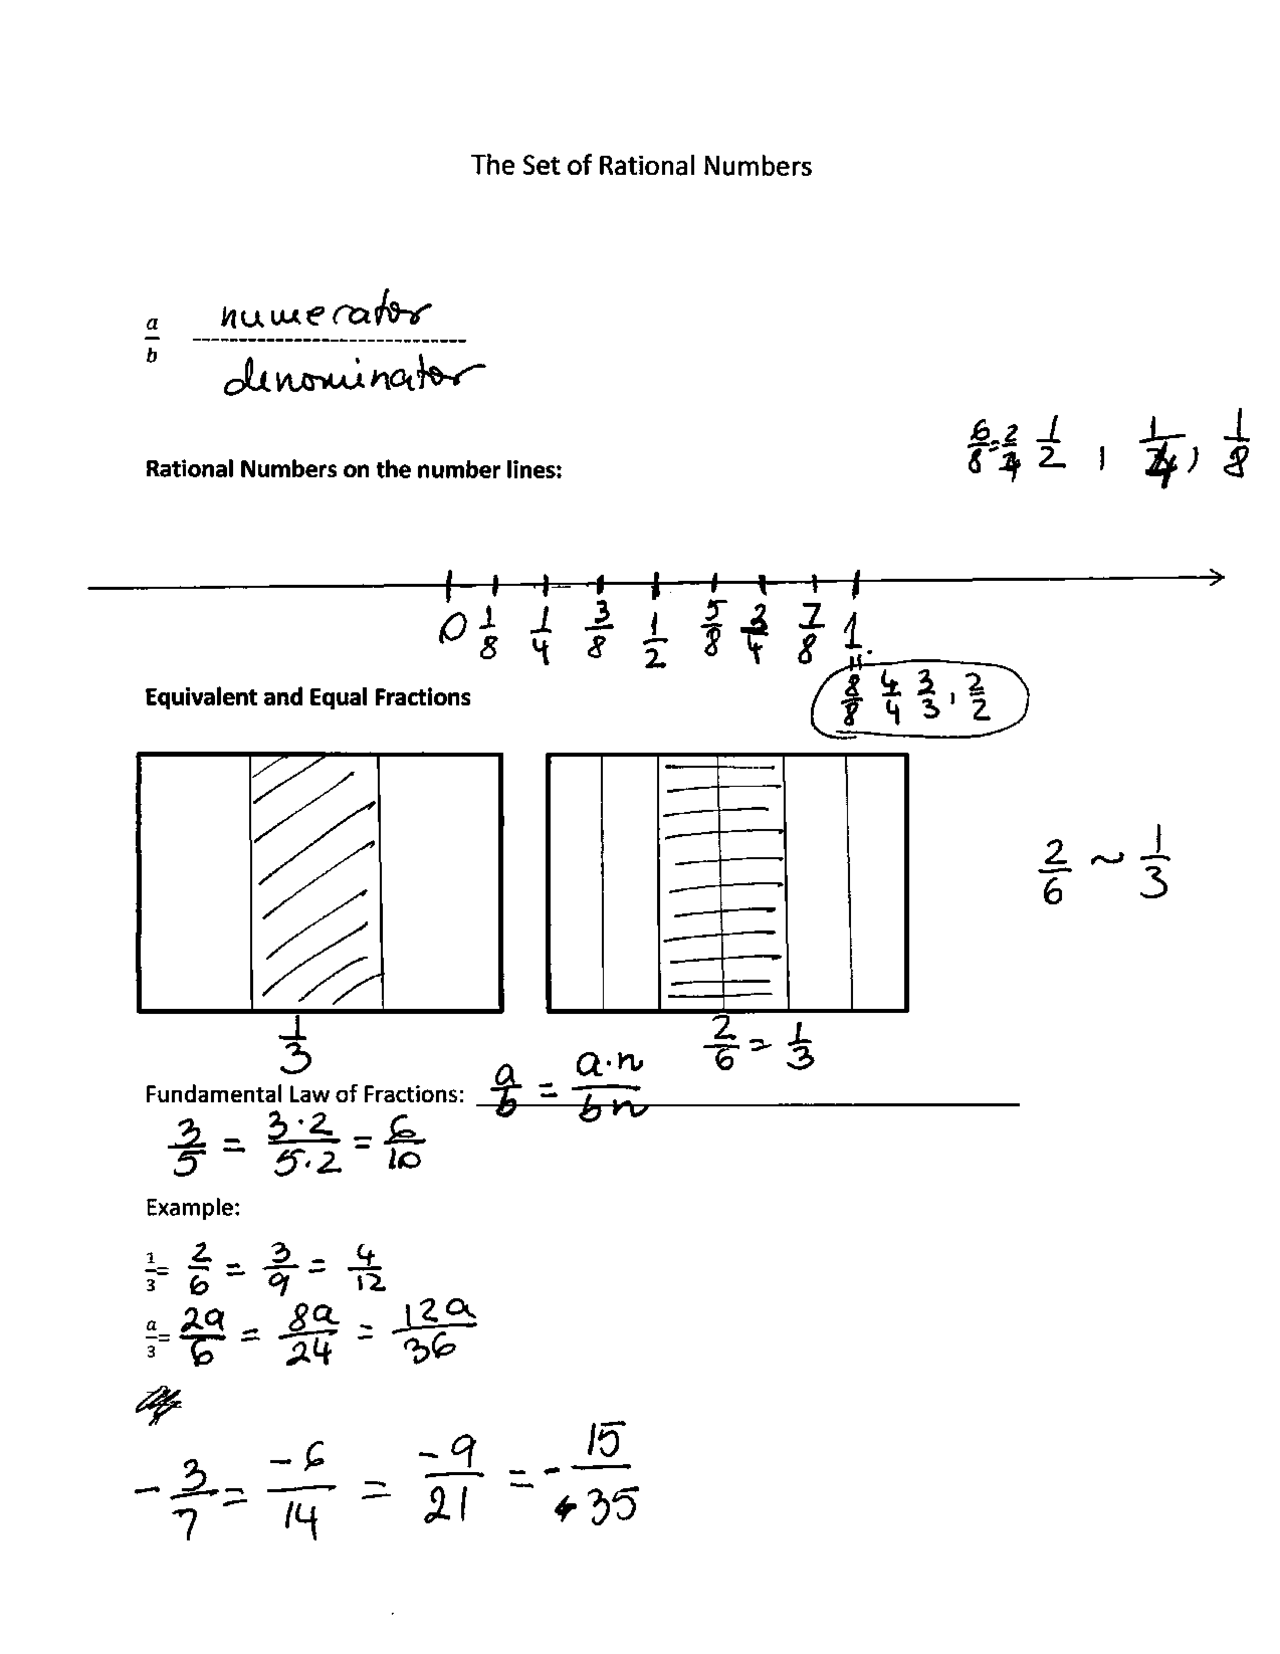 The Set of Rational Numbers
a/b numerator
denominator
6/8 = 2/4 1/2 , 1/4 , 1/8
Rational Numbers on the number lines:
0 1/8 1/4 3/8 1/2 5/8 3/4 7/8 1
=
8/8 4/4 3/3 , 2/2
Equivalent and Equal Fractions
2/6 ~ 1/3
1/3
2/6 = 1/3
Fundamental Law of Fractions: a/b = a·n/bn
3/5 = 3·2/5·2 = 6/10
Example:
1/3 = 2/6 = 3/9 = 4/12
a/3 = 2a/6 = 8a/24 = 12a/36
- 3/7 = -6/14 = -9/21 = - 15/35